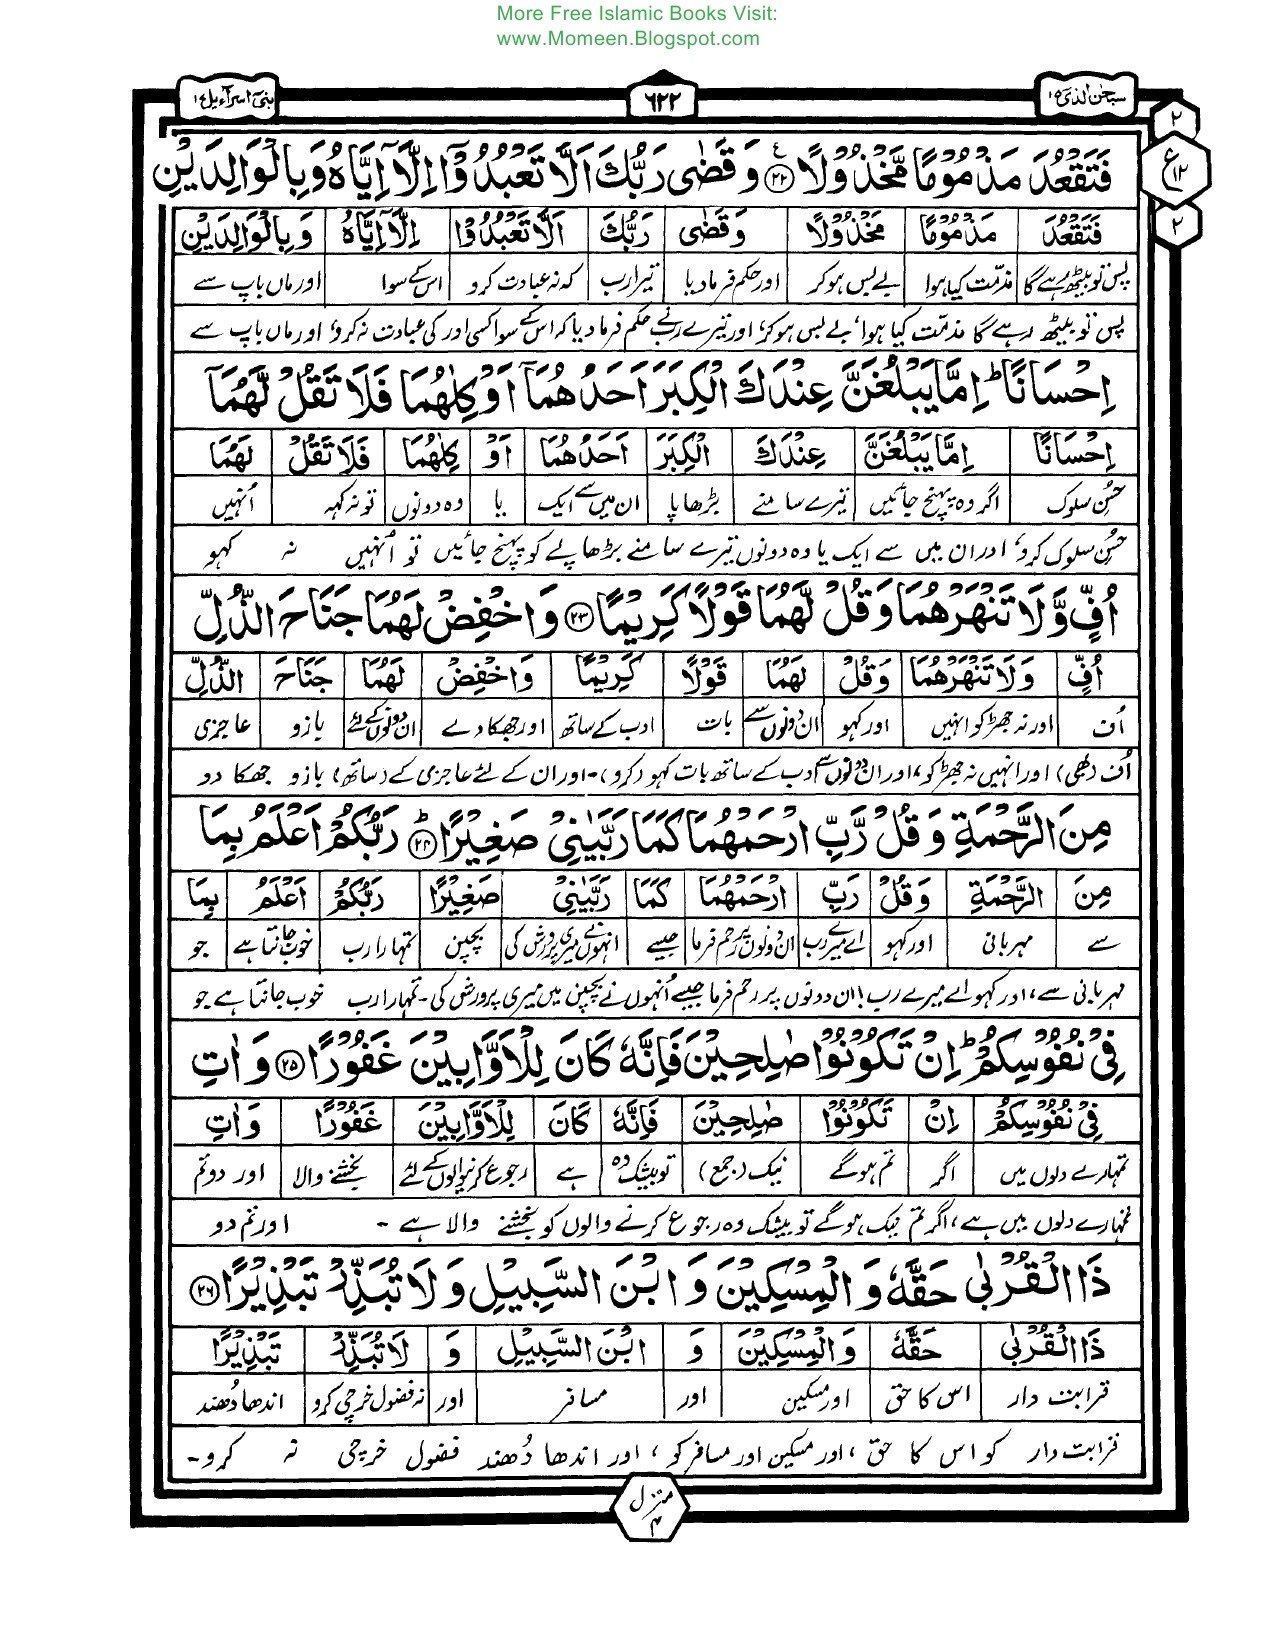 More Free Islamic Books Visit:
www.Momeen.Blogspot.com
سبحن الذی ۱۵ ۶۲۲ بنی اسرآءیل ۱۷
۲
ع ۱۲
۲
فَتَقْعُدَ مَذْمُوْمًا مَّخْذُوْلًا ﴿۲۲﴾ وَقَضٰى رَبُّكَ اَلَّا تَعْبُدُوْٓا اِلَّآ اِيَّاهُ وَبِالْوَالِدَيْنِ
فَتَقْعُدَ مَذْمُوْمًا مَخْذُوْلًا وَقَضٰى رَبُّكَ اَلَّا تَعْبُدُوْا اِلَّآ اِيَّاهُ وَبِالْوَالِدَيْنِ
پس تو بیٹھ رہے گا مذمّت کیا ہوا بے بس ہو کر اور حکم فرما دیا تیرا رب کہ نہ عبادت کرو اس کے سوا اور ماں باپ سے
پس تو بیٹھ رہے گا مذمّت کیا ہوا، بے بس ہو کر، اور تیرے رب نے حکم فرما دیا کہ اس کے سوا کسی اور کی عبادت نہ کرو، اور ماں باپ سے
اِحْسَانًا ؕ اِمَّا يَبْلُغَنَّ عِنْدَكَ الْكِبَرَ اَحَدُهُمَآ اَوْ كِلٰهُمَا فَلَا تَقُلْ لَّهُمَآ
اِحْسَانًا اِمَّا يَبْلُغَنَّ عِنْدَكَ الْكِبَرَ اَحَدُهُمَا اَوْ كِلٰهُمَا فَلَا تَقُلْ لَهُمَا
حسن سلوک اگر وہ پہنچ جائیں تیرے سامنے بڑھاپا ان میں سے ایک یا وہ دونوں تو نہ کہہ اُنہیں
حسن سلوک کرو، اور ان میں سے ایک یا وہ دونوں تیرے سامنے بڑھاپے کو پہنچ جائیں تو اُنہیں نہ کہو
اُفٍّ وَّلَا تَنْهَرْهُمَا وَقُلْ لَّهُمَا قَوْلًا كَرِيْمًا ﴿۲۳﴾ وَاخْفِضْ لَهُمَا جَنَاحَ الذُّلِّ
اُفٍّ وَلَا تَنْهَرْهُمَا وَقُلْ لَهُمَا قَوْلًا كَرِيْمًا وَاخْفِضْ لَهُمَا جَنَاحَ الذُّلِّ
اُف اور نہ جھڑکو انہیں اور کہو ان دونوں سے بات ادب کے ساتھ اور جھکا دے ان دونوں کے لئے بازو عاجزی
اُف (بھی) اور انہیں نہ جھڑکو، اور ان دونوں سے ادب کے ساتھ بات کہو (کرو)۔ اور ان کے لئے عاجزی کے (ساتھ) بازو جھکا دو
مِنَ الرَّحْمَةِ وَقُلْ رَّبِّ ارْحَمْهُمَا كَمَا رَبَّيٰنِيْ صَغِيْرًا ﴿۲۴﴾ؕ رَبُّكُمْ اَعْلَمُ بِمَا
مِنَ الرَّحْمَةِ وَقُلْ رَبِّ ارْحَمْهُمَا كَمَا رَبَّيٰنِيْ صَغِيْرًا رَبُّكُمْ اَعْلَمُ بِمَا
سے مہربانی اور کہو اے میرے رب ان دونوں پر رحم فرما جیسے انہوں نے میری پرورش کی بچپن تمہارا رب خوب جانتا ہے جو
مہربانی سے، اور کہو اے میرے رب! ان دونوں پر رحم فرما جیسے اُنہوں نے بچپن میں میری پرورش کی۔ تمہارا رب خوب جانتا ہے جو
فِيْ نُفُوْسِكُمْ ؕ اِنْ تَكُوْنُوْا صٰلِحِيْنَ فَاِنَّهٗ كَانَ لِلْاَوَّابِيْنَ غَفُوْرًا ﴿۲۵﴾ وَاٰتِ
فِيْ نُفُوْسِكُمْ اِنْ تَكُوْنُوْا صٰلِحِيْنَ فَاِنَّهٗ كَانَ لِلْاَوَّابِيْنَ غَفُوْرًا وَاٰتِ
تمہارے دلوں میں اگر تم ہو گے نیک (جمع) تو بیشک وہ ہے رجوع کرنیوالوں کے لئے بخشنے والا اور دو تم
تمہارے دلوں میں ہے، اگر تم نیک ہو گے تو بیشک وہ رجوع کرنے والوں کو بخشنے والا ہے۔ اور تم دو
ذَا الْقُرْبٰى حَقَّهٗ وَالْمِسْكِيْنَ وَابْنَ السَّبِيْلِ وَلَا تُبَذِّرْ تَبْذِيْرًا ﴿۲۶﴾
ذَا الْقُرْبٰى حَقَّهٗ وَالْمِسْكِيْنَ وَ ابْنَ السَّبِيْلِ وَ لَا تُبَذِّرْ تَبْذِيْرًا
قرابت دار اس کا حق اور مسکین اور مسافر اور نہ فضول خرچی کرو اندھا دُھند
قرابت دار کو اس کا حق، اور مسکین اور مسافر کو، اور اندھا دُھند فضول خرچی نہ کرو۔
منزل ۴